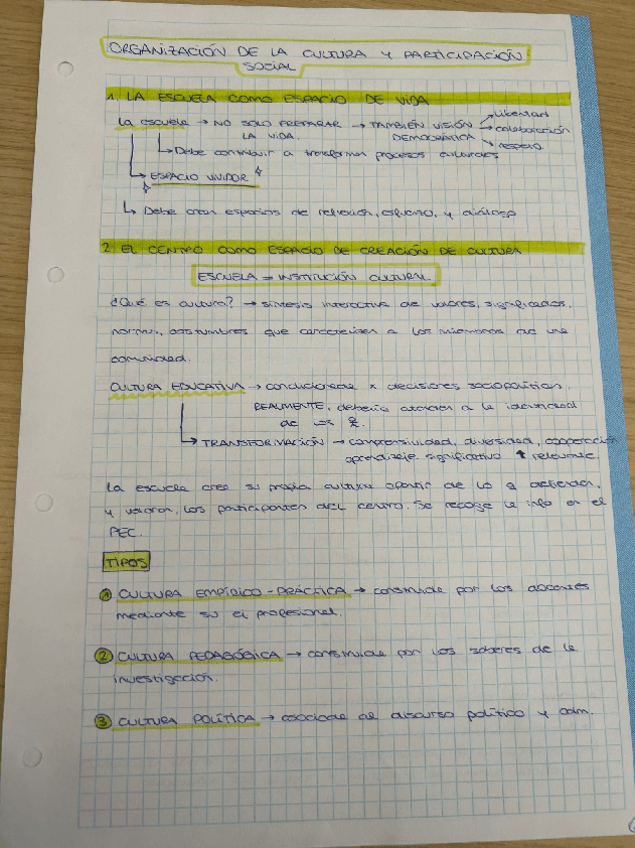 ORGANIZACIÓN DE LA CULTURA Y PARTICIPACIÓN
SOCIAL
1. LA ESCUELA COMO ESPACIO DE VIDA
La escuela → NO SOLO PREPARAR → TAMBIÉN VISIÓN → libertad
LA VIDA. DEMOCRÁTICA → colaboración
→ respeto
→ Debe contribuir a transformar procesos culturales
→ ESPACIO VIVIDOR
↳ Debe crear espacios de reflexión, esfuerzo, y diálogo
2. EL CENTRO COMO ESPACIO DE CREACIÓN DE CULTURA
ESCUELA = INSTITUCIÓN CULTURAL
¿Qué es cultura? → síntesis interactiva de valores, significados,
normas, costumbres que caracterizan a los miembros de una
comunidad.
CULTURA EDUCATIVA → condicionada x decisiones sociopolíticas.
REALMENTE, debería atender a la identidad
de los
→ TRANSFORMACIÓN → comprensividad, diversidad, cooperación
aprendizaje significativo + relevante.
La escuela crea su propia cultura apartir de lo q defienden,
y valoran, los participantes del centro. Se recoge la info en el
PEC.
TIPOS
1 CULTURA EMPÍRICO-PRÁCTICA → construida por los docentes
mediante su ej profesional.
2 CULTURA PEDAGÓGICA → construida por los saberes de la
investigación.
3 CULTURA POLÍTICA → asociada al discurso político y adm.